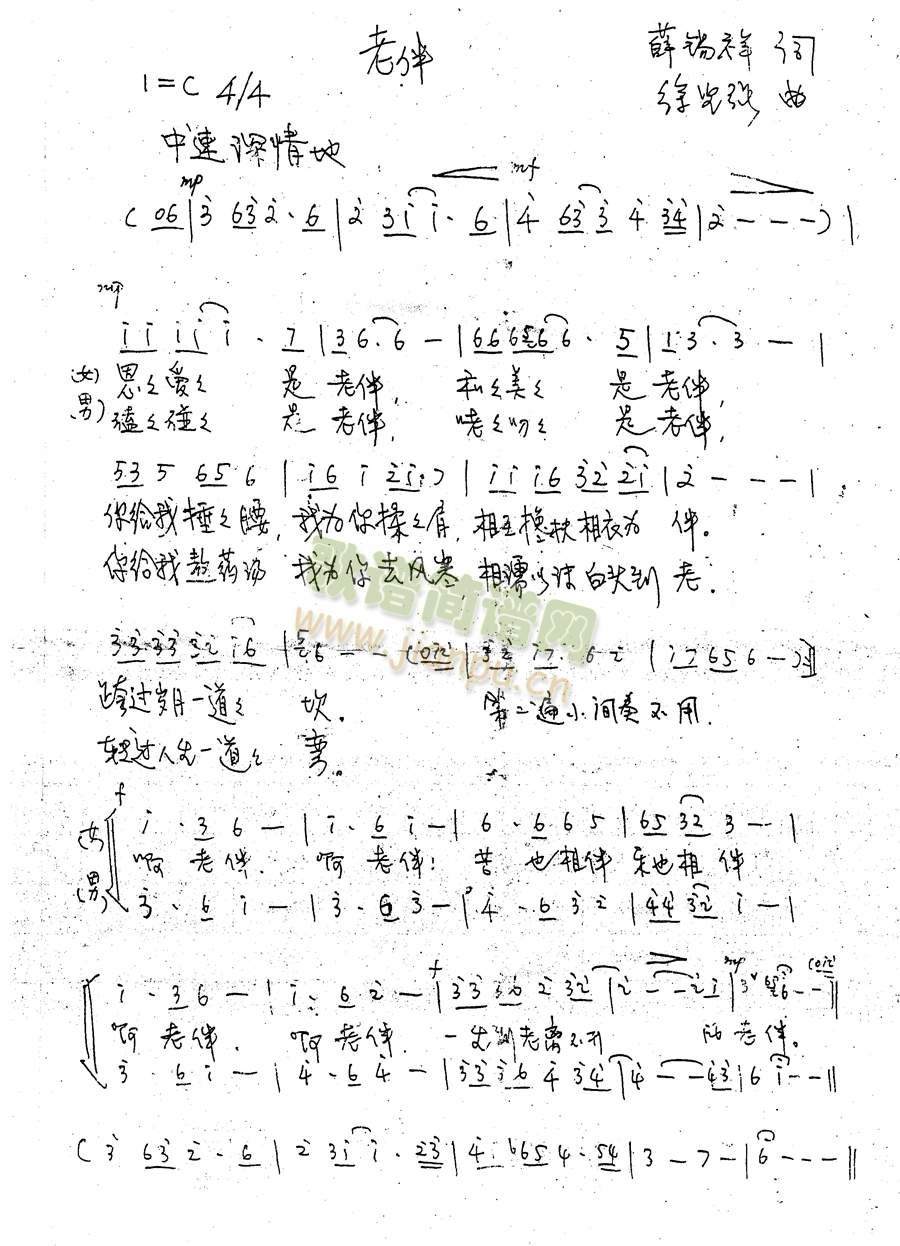 老伴
薛锡祥 词
1=C 4/4
曲
中速 深情地
mp mf
(06|3 632·6|2 311·6|4 633 4 34|2---)|
mp
11 111·7|36·6-|666566·5|13·3-|
(女) 恩々爱々 是老伴, 和々美々 是老伴,
(男) 磕々碰々 是老伴, 吵々吵々 是老伴,
53 5 65·6|16 1 21·7|11 16 32 21|2---|
你给我捶々腰, 我为你揉々肩, 相互搀扶相依为 伴。
你给我熬药汤 我为你去风寒, 相濡以沫白头到 老。
歌谱简谱网
www.jianpu.cn
33 33 32 16
跨过岁月一道々 坎。 第二遍小间奏不用.
走过人生一道々 弯。
f
1·36-|1·61-|6·665|65323-|
(女) 啊 老伴. 啊 老伴! 苦 也相伴 乐也相 伴
(男) 3·61-|3·63-|4·632|44321-|
f mp
1·36-|1·62-|3336232|2--21|
啊 老伴. 啊 老伴. 一生到老离不开 老伴。
3·61-|4·64-|3336434|4--43|61--||
(3 632·6|2 311·23|4·6654·54|3-7-|6---||